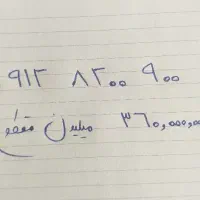 ۹۱۲ ۸۲۰۰ ۹۰۰
۳۶۰,۰۰۰,۰۰ میلیون مقطوع